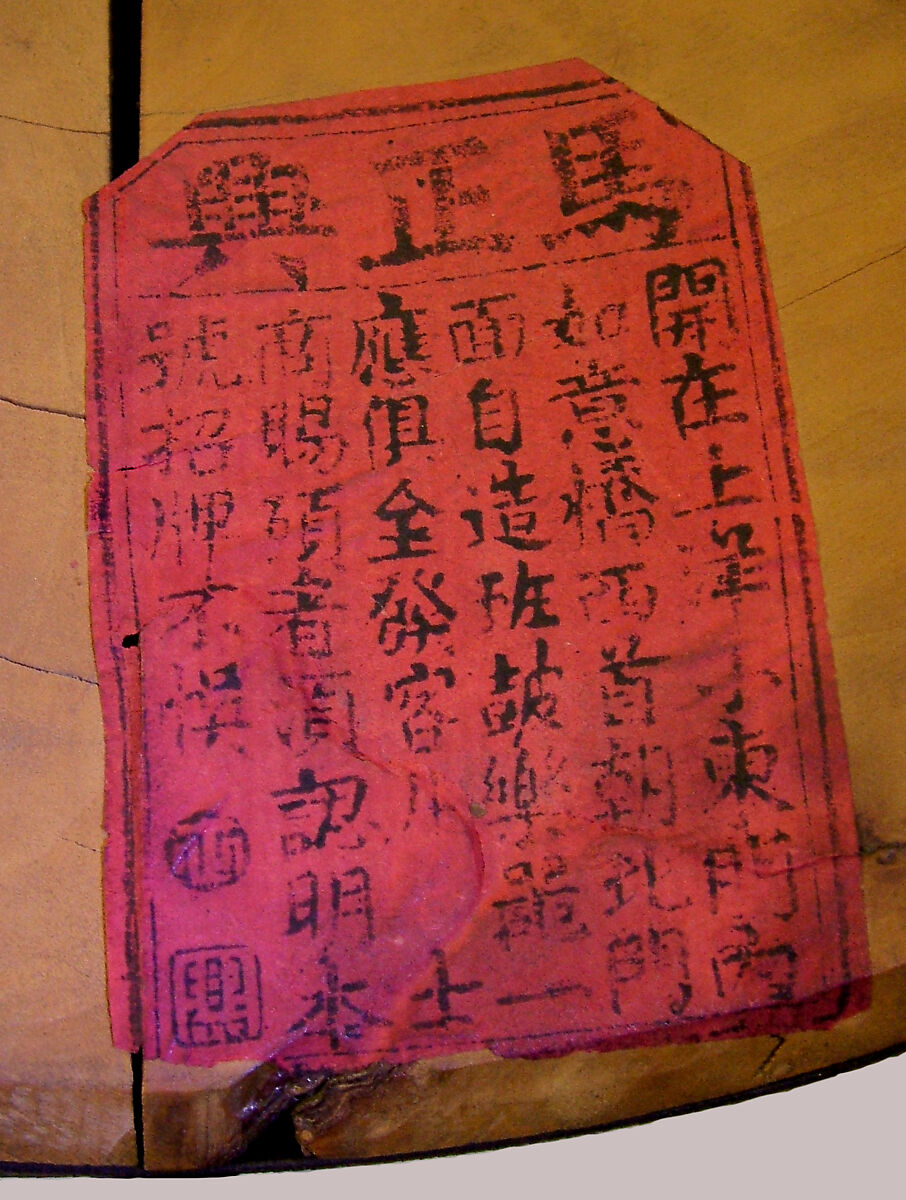 馬正興
開在上洋小東門內
如意橋西首朝北門
面自造班鼓樂器一
應俱全發客士
商賜顧者須認明本
號招牌不悞
興